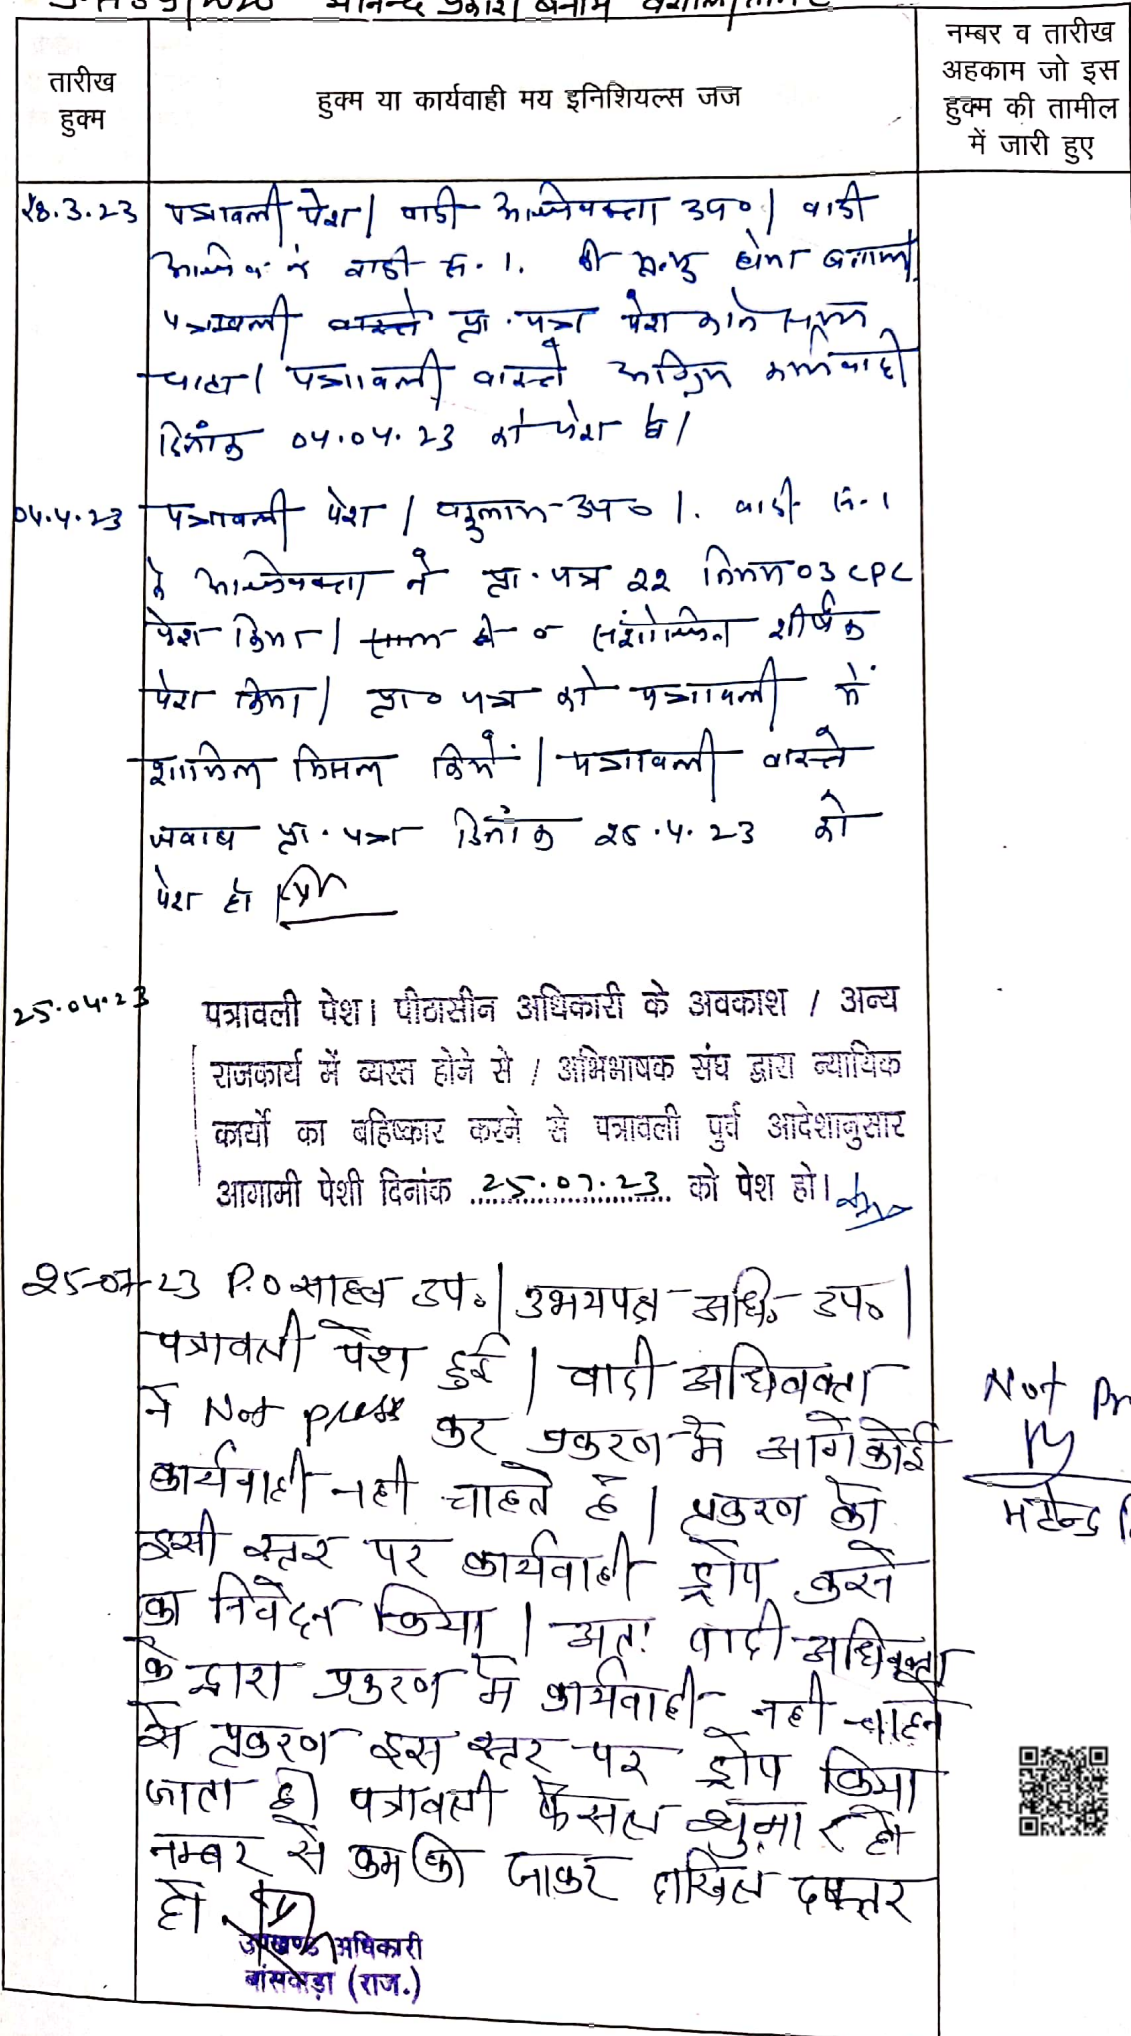 तारीख
हुक्म
हुक्म या कार्यवाही मय इनिशियल्स जज
नम्बर व तारीख
अहकाम जो इस
हुक्म की तामील
में जारी हुए
28.3.23 पत्रावली पेश। वादी अभिवक्ता उप०। वादी
वादी स. 1. की मृत्यु होना बताया
पत्रावली वास्ते प्रा. पत्र पेश करने समय
चाहा। पत्रावली वास्ते अग्रिम कार्यवाही
दिनांक 04.04.23 को पेश हो।
04.4.23 पत्रावली पेश। वकुलान उप०।. वादी स.1
के अभिवक्ता ने प्रा. पत्र 22 नियम 03 CPC
पेश किया। साथ ही संशोधित शीर्षक
पेश किया। प्रा० पत्र को पत्रावली में
शामिल मिसल किये। पत्रावली वास्ते
जवाब प्रा. पत्र दिनांक 25.4.23 को
पेश हो
25.04.23 पत्रावली पेश। पीठासीन अधिकारी के अवकाश / अन्य
राजकार्य में व्यस्त होने से / अभिभाषक संघ द्वारा न्यायिक
कार्यो का बहिष्कार करने से पत्रावली पुर्व आदेशानुसार
आगामी पेशी दिनांक 25.07.23 को पेश हो।
25-07-23 P.O साहब उप.। उभयपक्ष अधि. उप०।
पत्रावली पेश हुई। वादी अधिवक्ता
ने Not press कर प्रकरण में आगे कोई
कार्यवाही नही चाहते है। प्रकरण को
इसी स्तर पर कार्यवाही ड्रोप करने
का निवेदन किया। अतः वादी अधिवक्ता
के द्वारा प्रकरण में कार्यवाही नही चाहने
से प्रकरण इस स्तर पर ड्रोप किया
जाता है। पत्रावली फैसल शुमार हो
नम्बर से कम की जाकर दाखिल दफ्तर
हो.
Not Pr
उपखण्ड अधिकारी
बांसवाड़ा (राज.)